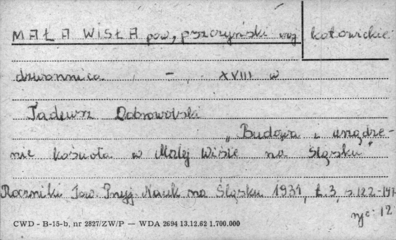 MAŁA WISŁA pow, pszczyński woj katowickie
dzwonnica - XVIII w
Tadeusz Dobrowolski
"Budowa i urządze-
nie kościoła w Małej Wiśle na Śląsku"
Roczniki Tow. Przyj. Nauk na Śląsku 1931, t. 3, s. 122-141
ryc: 12
CWD - B-15-b, nr 2827/ZW/P — WDA 2694 13.12.62 1.700.000